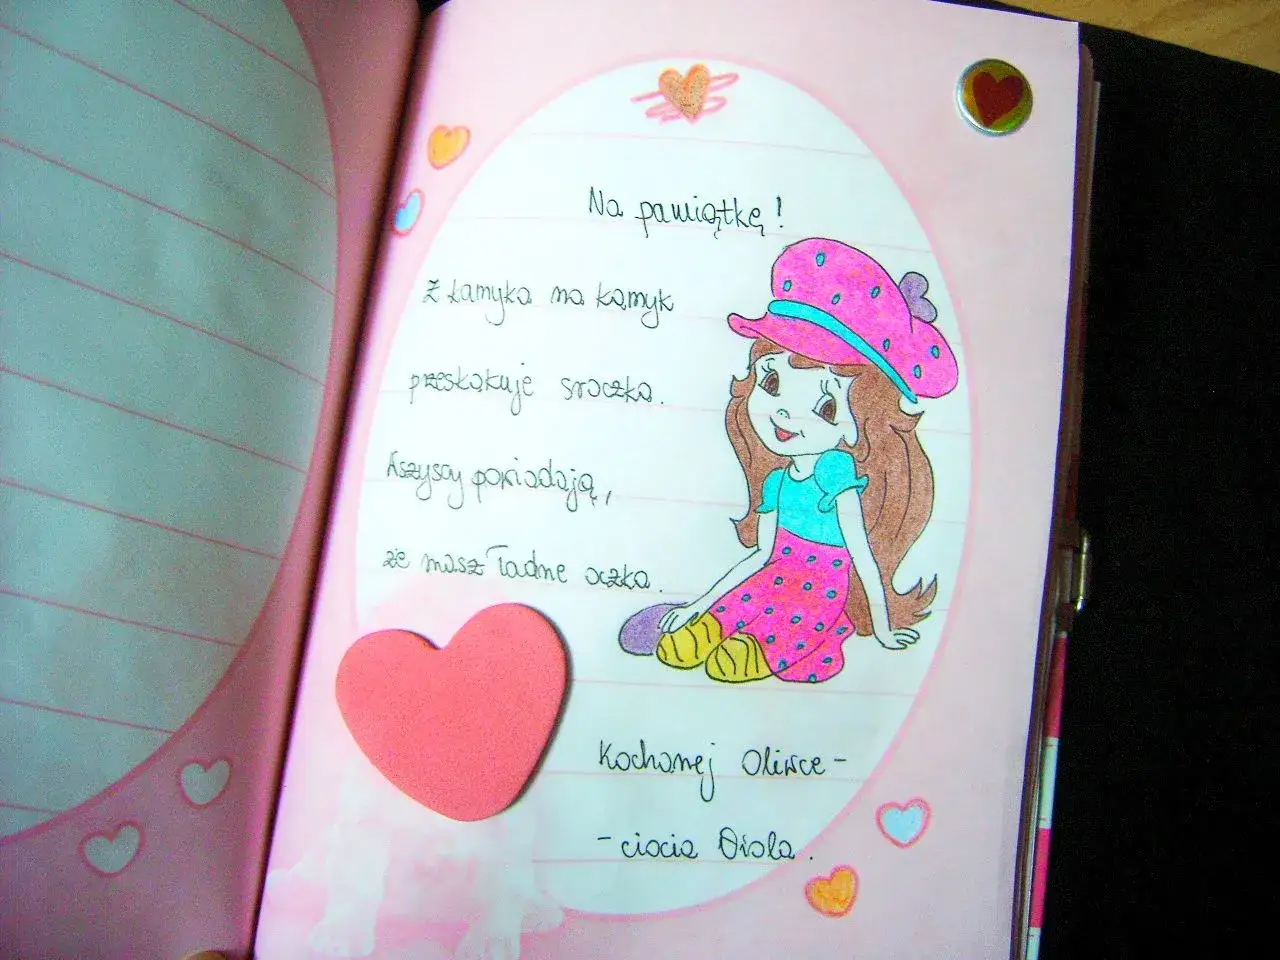 Na pamiątkę!
Z kamyka na kamyk
przeskakuje sroczka.
Wszyscy powiadają,
że masz ładne oczka.
Kochanej Oliwce -
- ciocia Wiola.